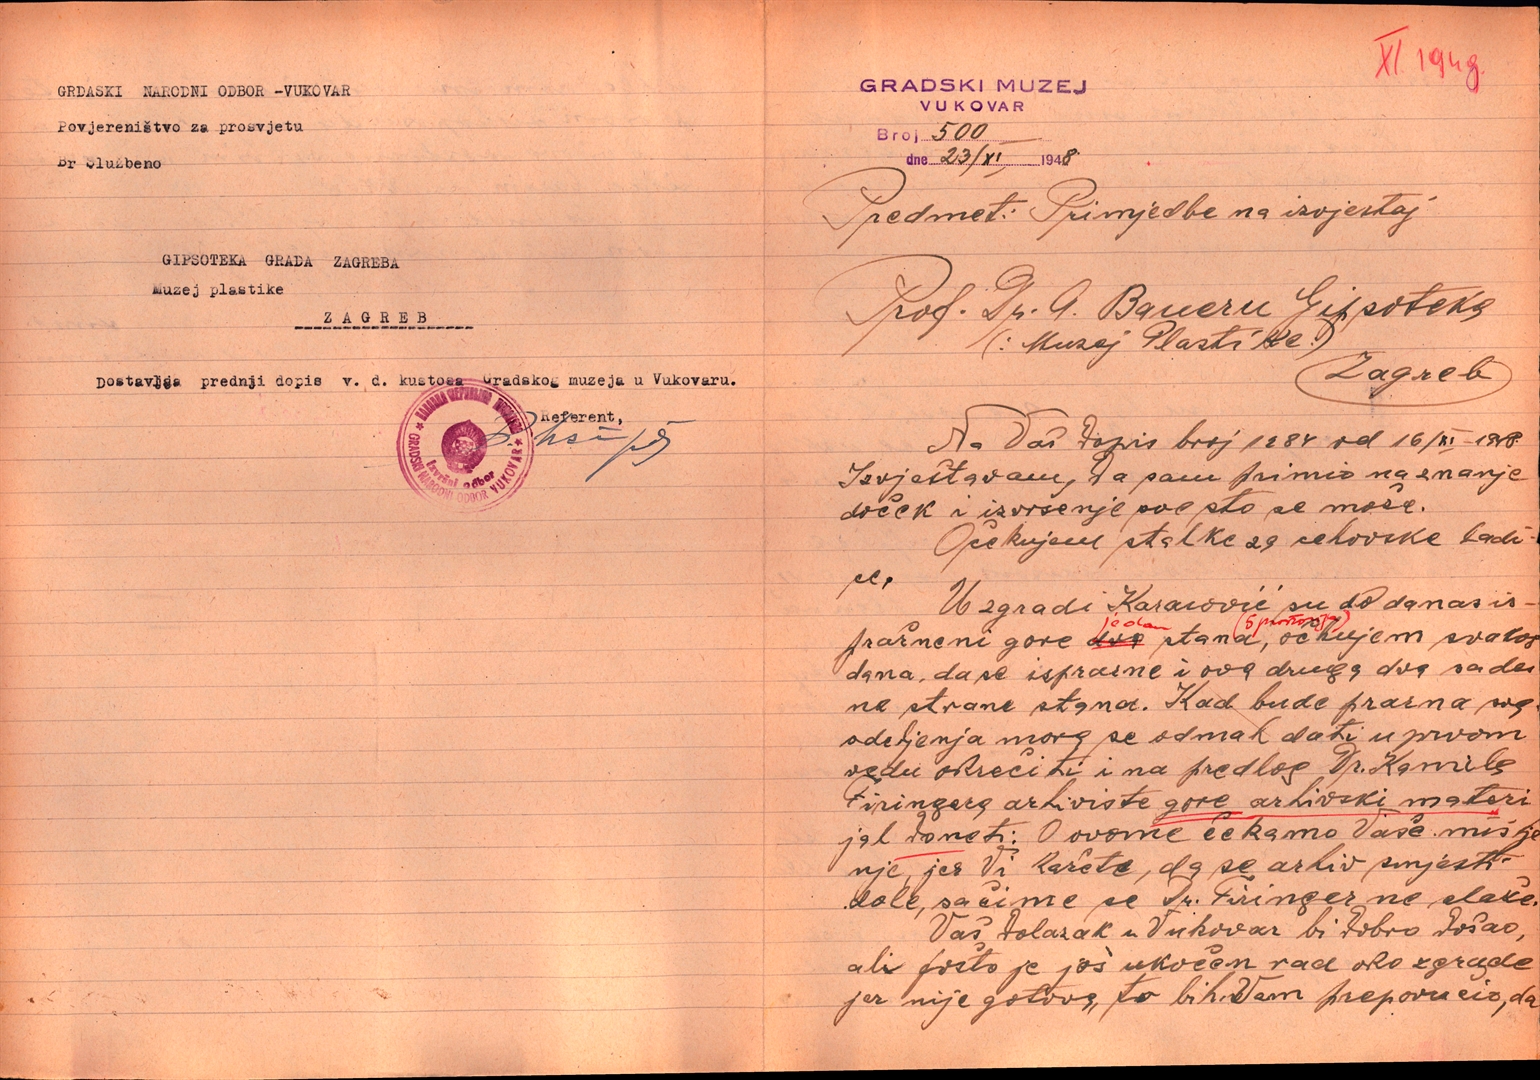 GRDASKI NARODNI ODBOR -VUKOVAR
Povjereništvo za prosvjetu
Br Službeno
GIPSOTEKA GRADA ZAGREBA
Muzej plastike
ZAGREB
Dostavlja prednji dopis v. d. kustosa Gradskog muzeja u Vukovaru.
Referent,
NARODNA REPUBLIKA HRVATSKA
GRADSKI NARODNI ODBOR VUKOVAR
Izvršni odbor
XI 1949.
GRADSKI MUZEJ
VUKOVAR
Broj 500
dne 23/XI 1948
Predmet: Primjedbe na izvjestaj
Prof. Dr. A. Baueru Gipsoteka
(: Muzej Plastike:)
Zagreb
Na Vaš dopis broj 1284 od 16/XI-1948.
Izvještavam, da sam primio na znanje
doček i izvršenje sve što se može.
Očekujem stalke za cehovske ladi-
ce.
U zgradi Karasović su do danas is-
pražneni gore dva jedan stana, (5 prostorija) očekujem svakog
dana, da se isprazne i ova druga dva sa des
ne strane stana. Kad bude prazna sva
odeljenja mora se odmah dati u prvom
redu okrečiti i na predlog Dr. Kamila
Firingera arhiviste gore arhivski materi
jal doneti: O ovome čekamo Vaše mišlje
nje, jer Vi kažete, da se arhiv smjesti
dole, sa čime se Dr. Firinger ne slaže.
Vaš dolazak u Vukovar bi dobro došao,
ali pošto je još ukočen rad oko zgrade
jer nije gotova, to bih Vam preporučio, da